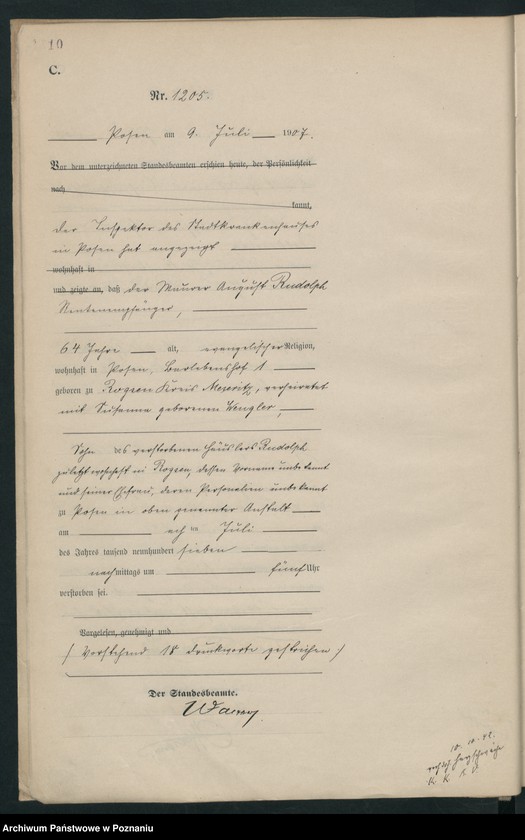 10
C.
Nr. 1205.
Posen am 9. Juli 1907.
Vor dem unterzeichneten Standesbeamten erschien heute, der Persönlichkeit
nach
kannt,
der Inspektor des Stadtkrankenhauses
in Posen hat angezeigt
wohnhaft in
und zeigte an, daß der Maurer August Rudolph
Rentenempfänger,
64 Jahre alt, evangelischer Religion,
wohnhaft in Posen, 1
geboren zu Rogsen Kreis Meseritz, verheiratet
mit Susanna geborenen Wengler,
Sohn des verstorbenen Häuslers Rudolph
zuletzt wohnhaft in Rogsen, dessen Vorname unbekannt
und seiner Ehefrau, deren Personalien unbekannt
zu Posen in oben genannter Anstalt
am acht ten Juli
des Jahres tausend neunhundert sieben
nachmittags um fünf Uhr
verstorben sei.
Vorgelesen, genehmigt und
/ Vorstehend 18 Druckworte gestrichen /
Der Standesbeamte.
10.10.42.
K K K
Archiwum Państwowe w Poznaniu